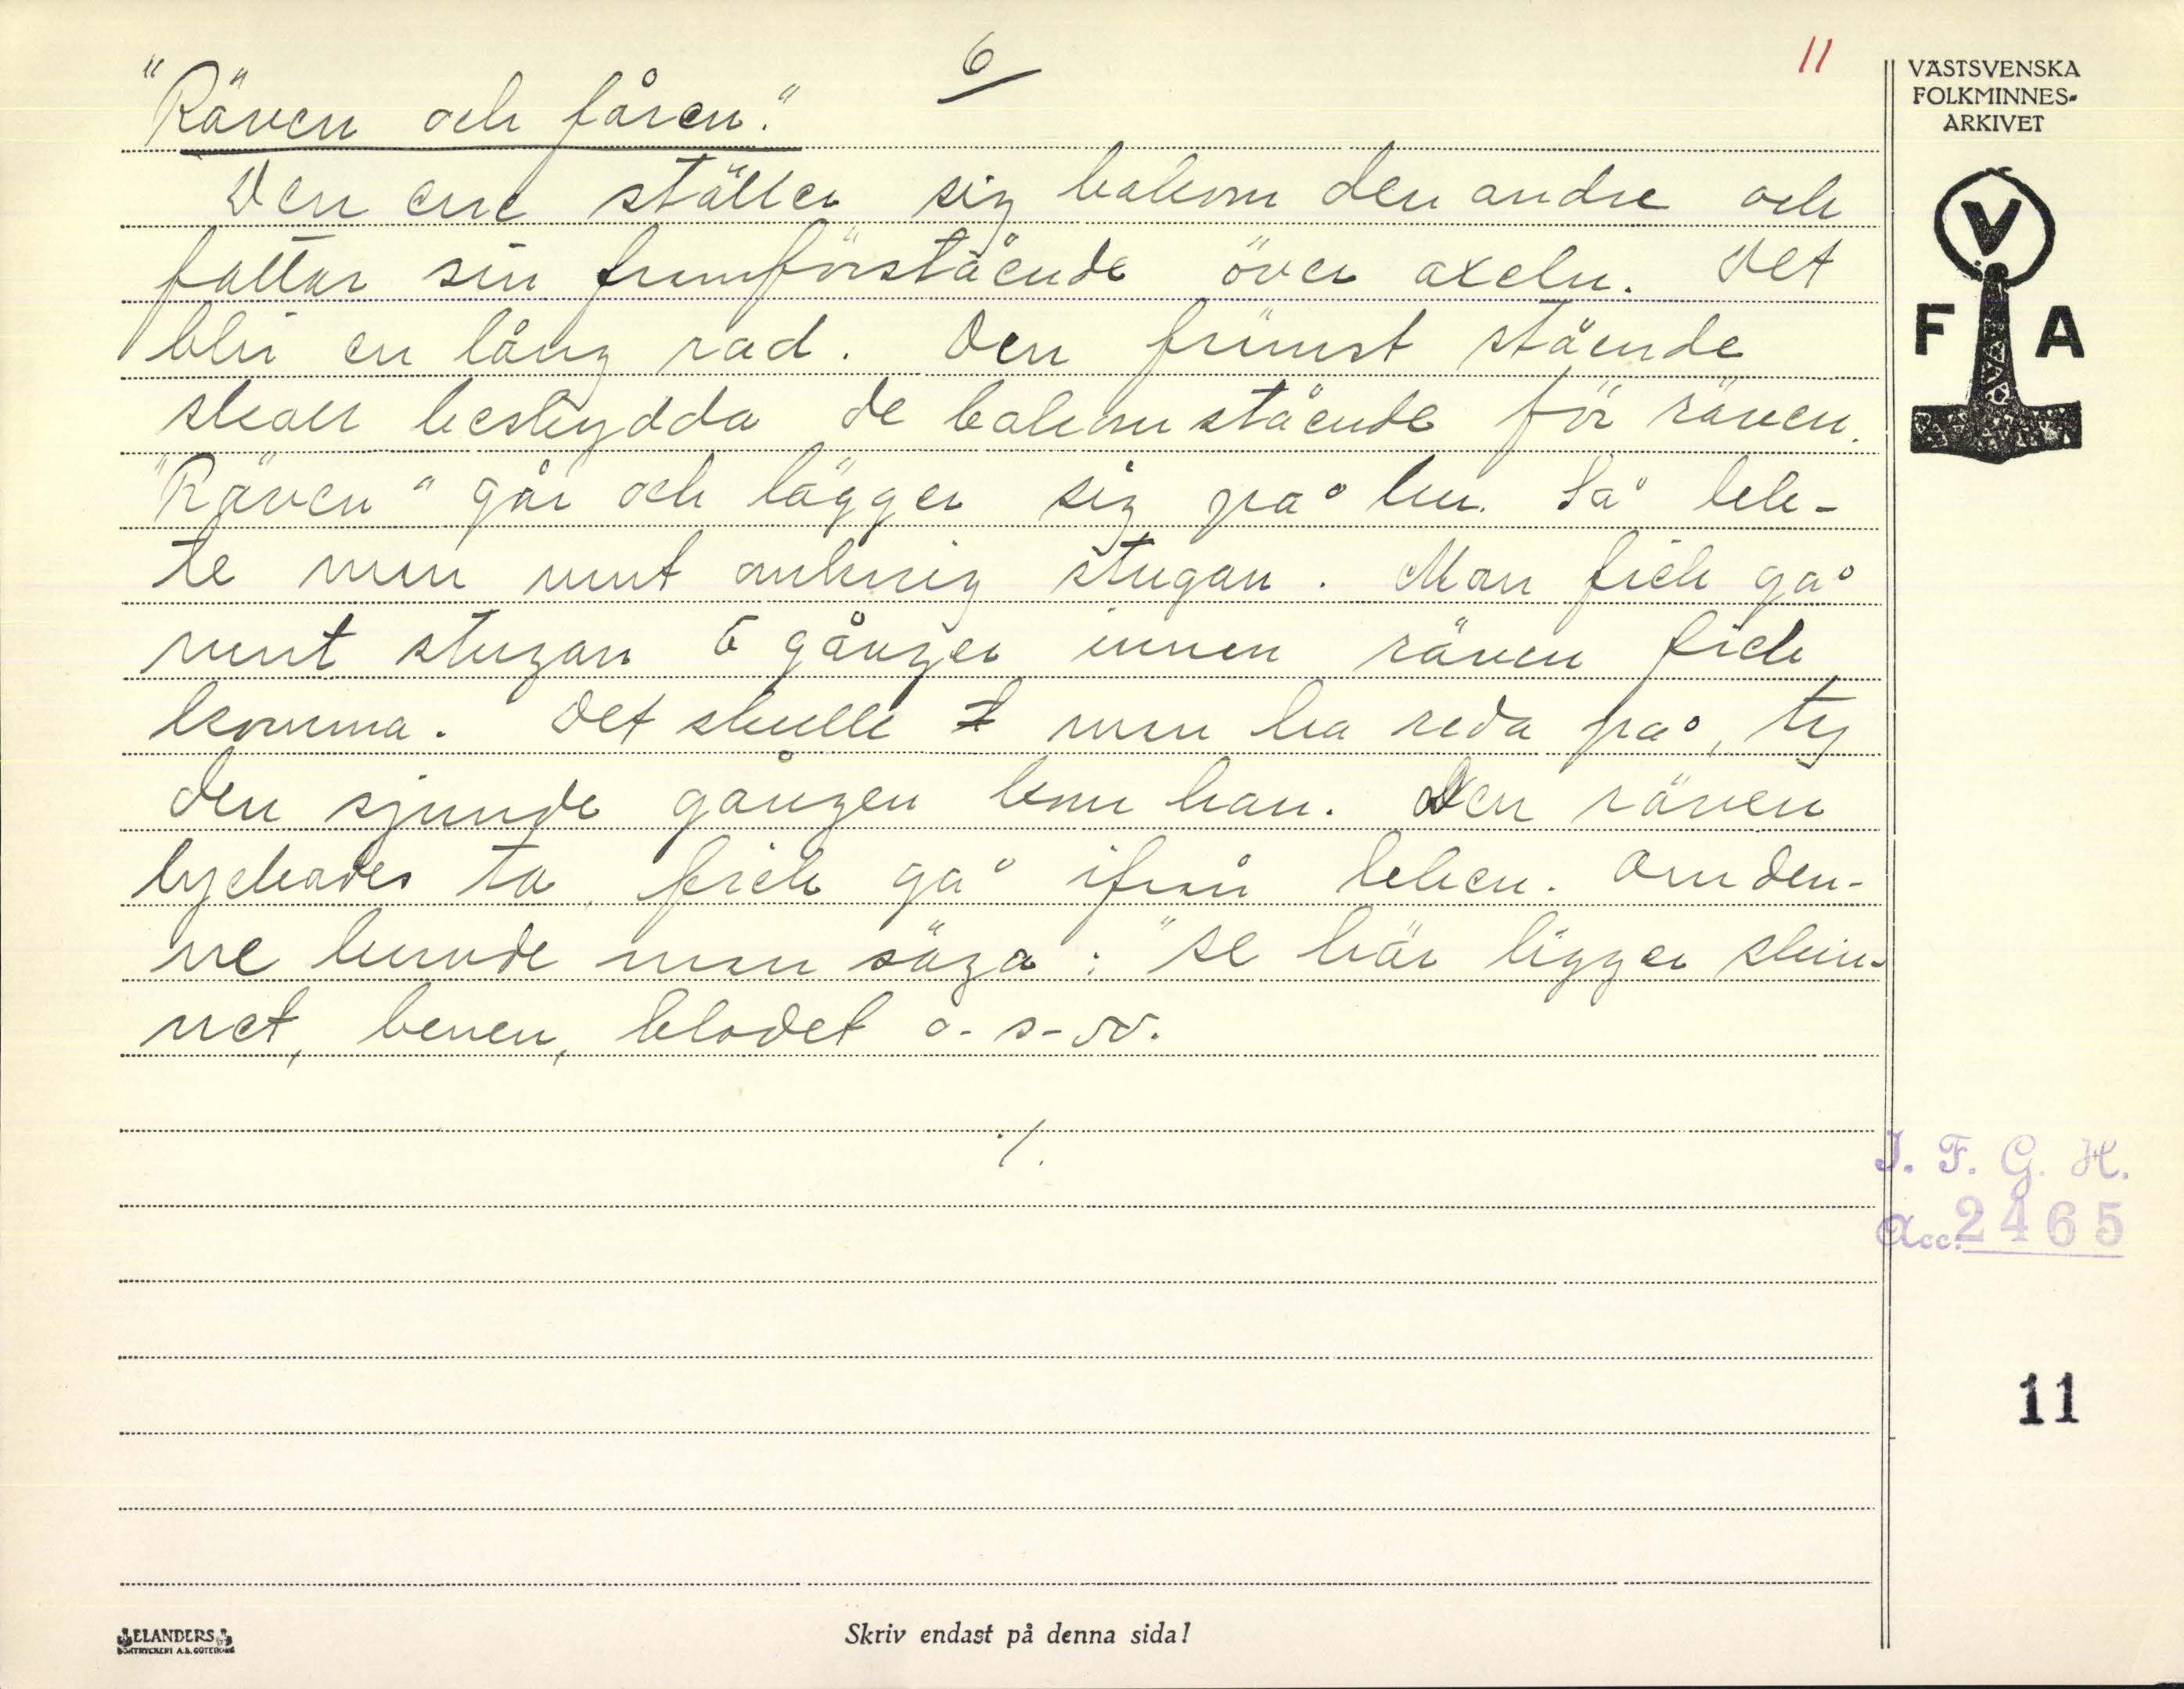 6
11
"Räven och fåren."
Den ene ställer sig bakom den andre och
fattar sin framförstående över axeln. Det
blir en lång rad. Den främst stående
skall beskydda de bakomstående för räven.
"Räven" går och lägger sig på lur. Så lek-
te man runt omkring stugan. Man fick gå
runt stugan 6 gånger innan räven fick
komma. Det skulle man ha reda på, ty
den sjunde gången kom han. Den räven
lyckades ta, fick gå ifrån leken. Om den-
ne kunde man säga: "se här ligger skin-
net, benen, blodet o.s.v.
./.
VÄSTSVENSKA
FOLKMINNES-
ARKIVET
V
F A
I. F. G. H.
Acc. 2465
11
ELANDERS
BOKTRYCKERI A.B. GÖTEBORG
Skriv endast på denna sida!